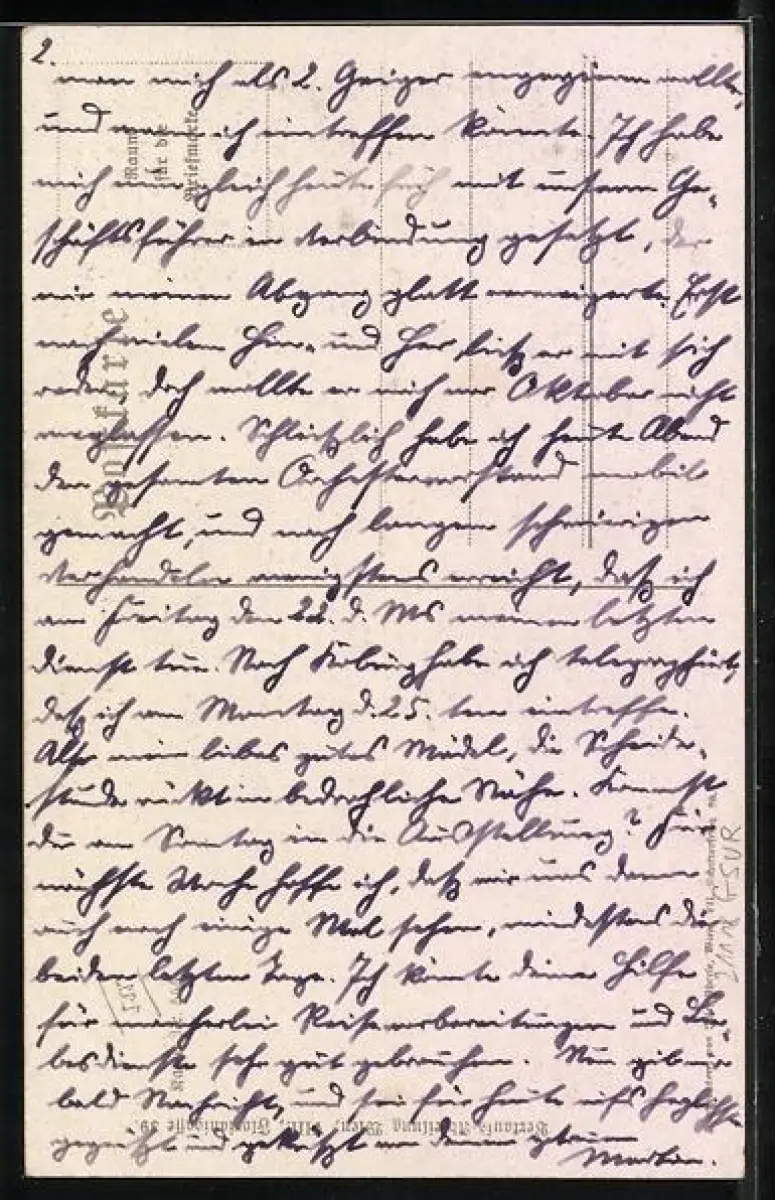 2.
man mich als 2. Geiger engagieren wollte,
und wann ich eintreffen könnte. Ich habe
mich nun gleich heute früh mit unserm Ge-
schäftsführer in Verbindung gesetzt, der
mir meinen Abgang glatt verweigerte. Erst
nach vielem Hin- und Her ließ er mit sich
reden, doch wollte er mich vor Oktober nicht
weglassen. Schließlich habe ich heute Abend
den gesamten Orchestervorstand mobil
gemacht, und nach langem schwierigen
Verhandeln wenigstens erreicht, daß ich
am Freitag den 22. d. Ms meinen letzten
Dienst tue. Nach habe ich telegraphiert,
daß ich am Montag d. 25. ten eintreffe.
Also mein liebes gutes Mädel, die Scheide-
stunde rückt in bedrohliche Nähe. Kommst
du am Sonntag in die Ausstellung? Für
nächste Woche hoffe ich, daß wir uns dann
auch noch einige Mal sehen, mindestens die
beiden letzten Tage. Ich könnte deine Hilfe
für mancherlei Reisevorbereitungen und Lie-
besdienste sehr gut gebrauchen. Nun gib mir
bald Nachricht, und sei für heute aufs herzlichste
gegrüßt und geküsst von deinem
Raum
für die
Briefmarke
Postkarte
Verkaufs-Abteilung Wien, VIII.,
21112 FSUR